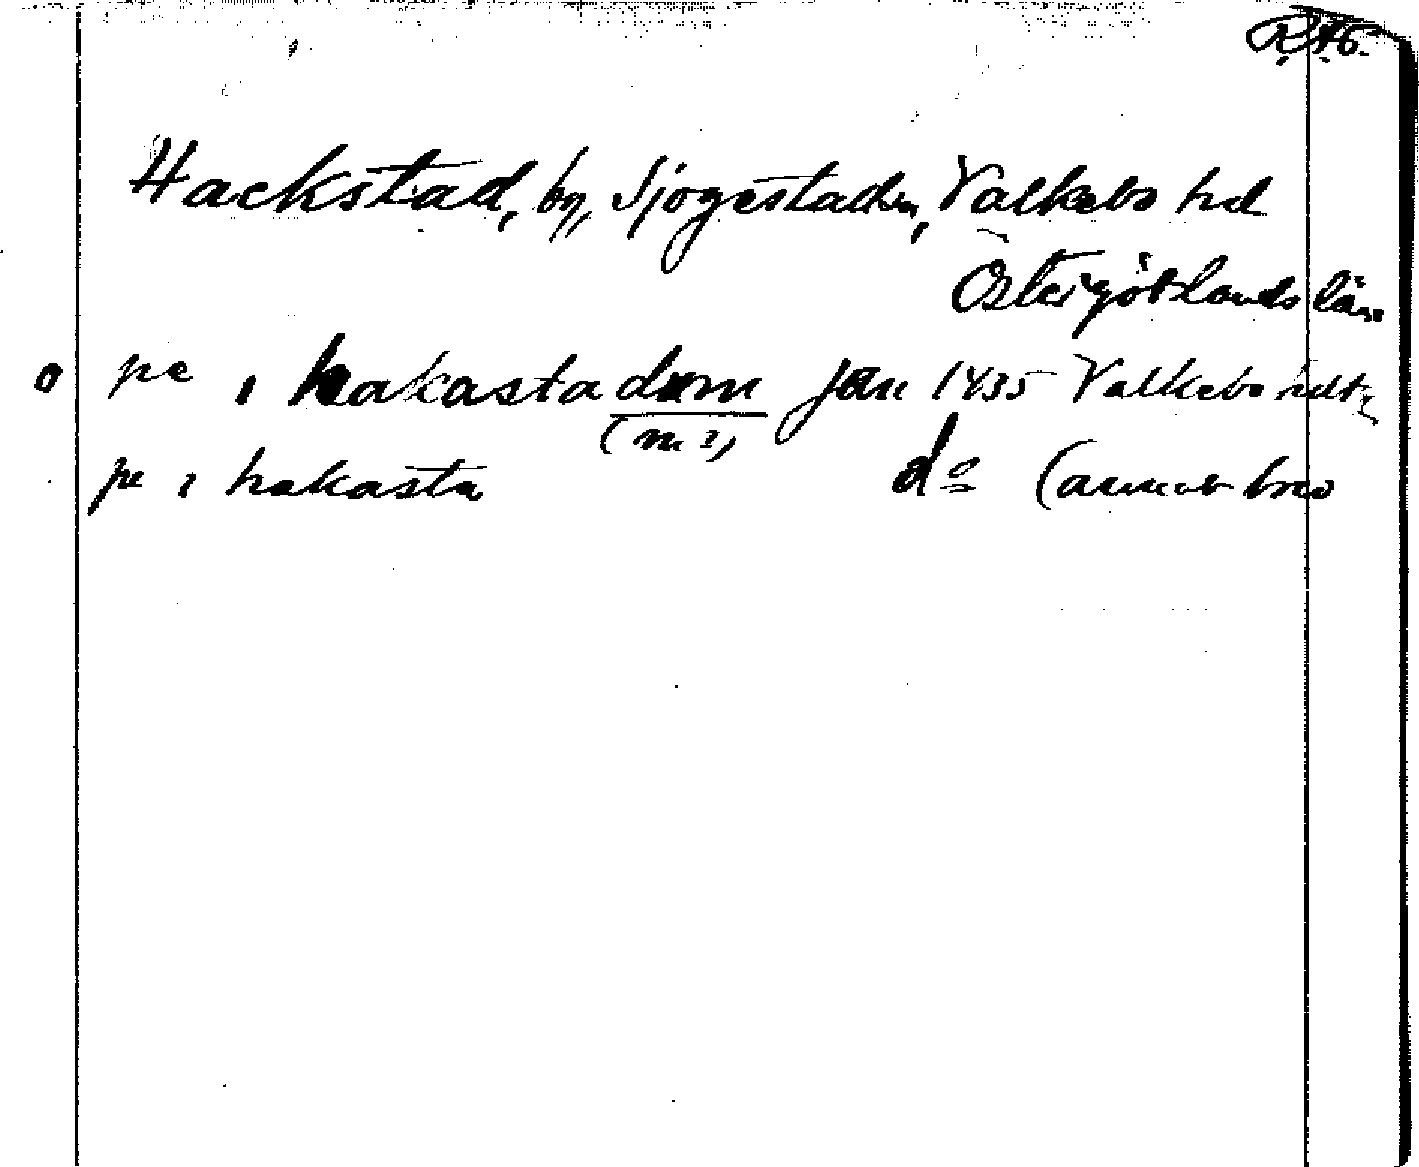 R.A.
Hackstad, by, Sjögestad sn, Valkebo hd
Östergötlands län
o pe i hakastadum jan 1435 Valkebo hdt
(m ?)
pe i hakasta do (annat brev